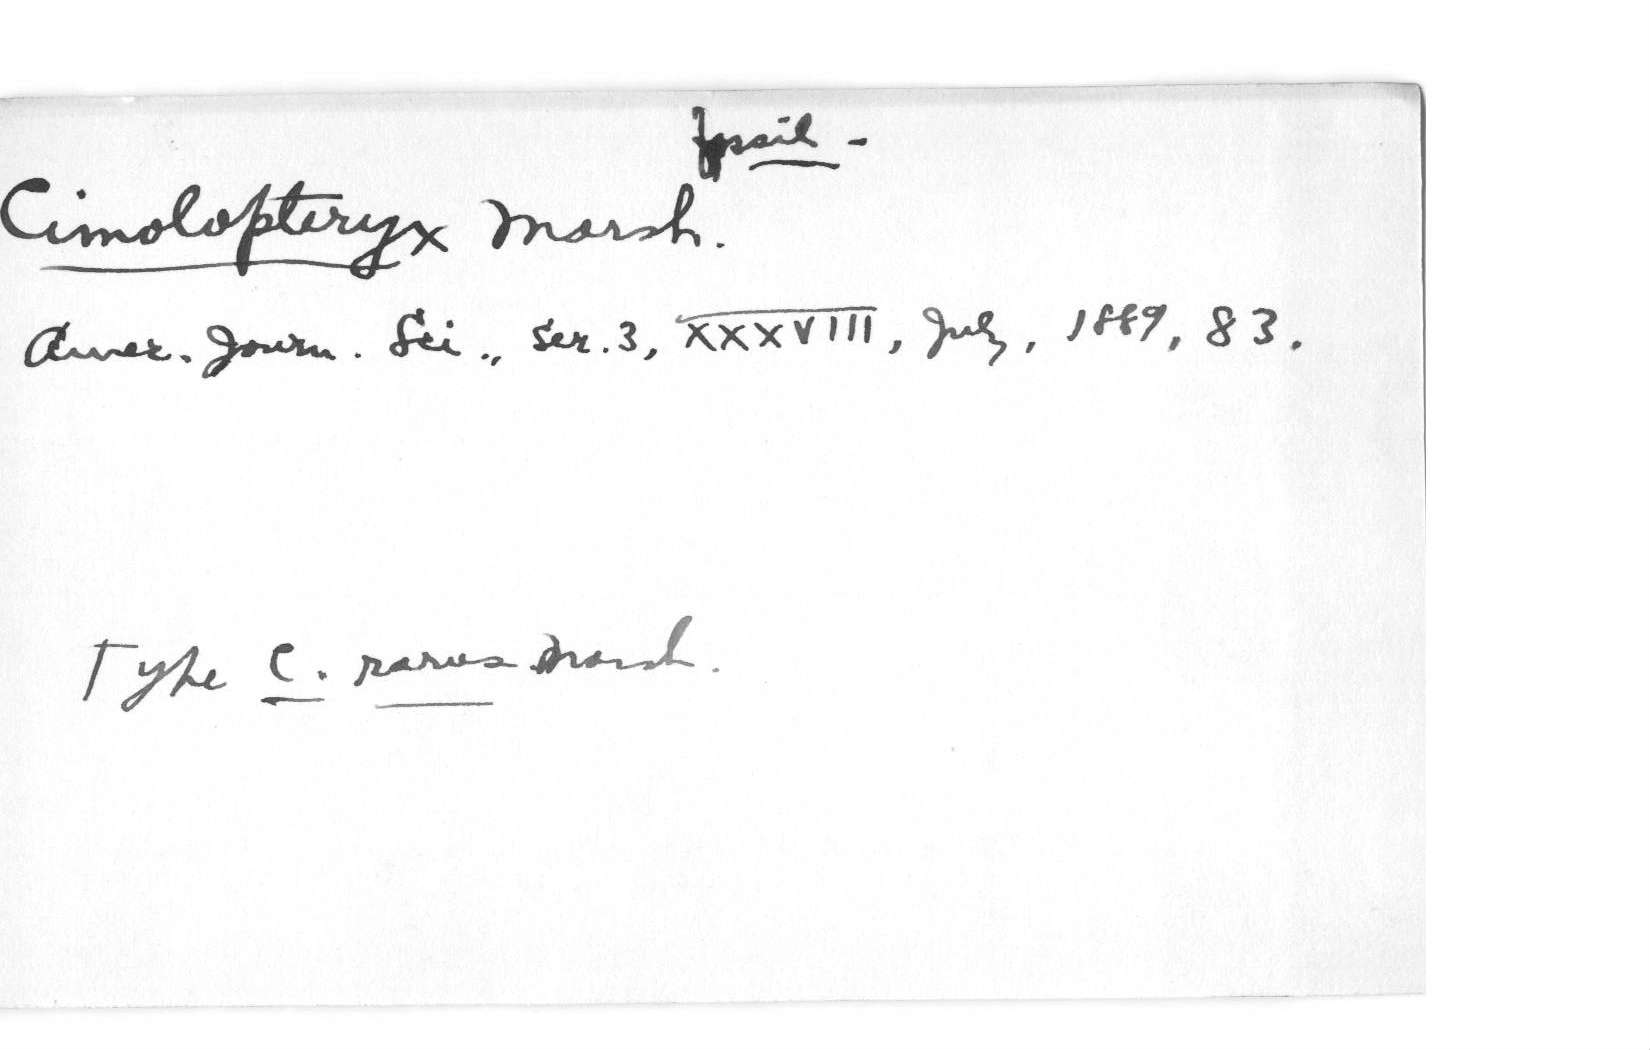 Fossil -
Cimolopteryx Marsh.
Amer. Journ. Sci., Ser. 3, XXXVIII, July, 1889, 83.
Type C. rarus Marsh.